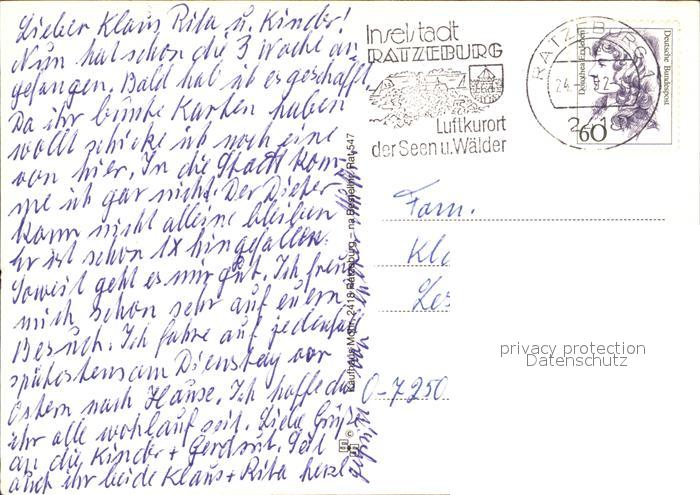 Lieber Klaus Rita u. Kinder!
Nun hat schon die 3 Woche an
gefangen. Bald hab ich es geschafft
Da ihr bunte Karten haben
wollt schicke ich noch eine
von hier. In die Stadt kom
me ich gar nicht. Der Dieter
kann nicht alleine bleiben
Er ist schon 1x hingefallen.
Soweit geht es mir gut. Ich freu
mich schon sehr auf euern
Besuch. Ich fahre auf jedenfall
spätestens am Dienstag vor
Ostern nach Hause. Ich hoffe das
ihr alle wohlauf seit. Liebe Grüße
an die Kinder + Gerdrut. Seit
auch ihr beide Klaus + Rita herzl.
gegrüßt
Inselstadt
RATZEBURG
Luftkurort
der Seen u. Wälder
RATZEBURG 1
24.
92-
2418
Deutsche Bundespost
60
Kaufhaus Mohr, 2418 Ratzeburg – na Bestellnr. Rat 547
Fam.
Kla
Les
O-7250
privacy protection
Datenschutz